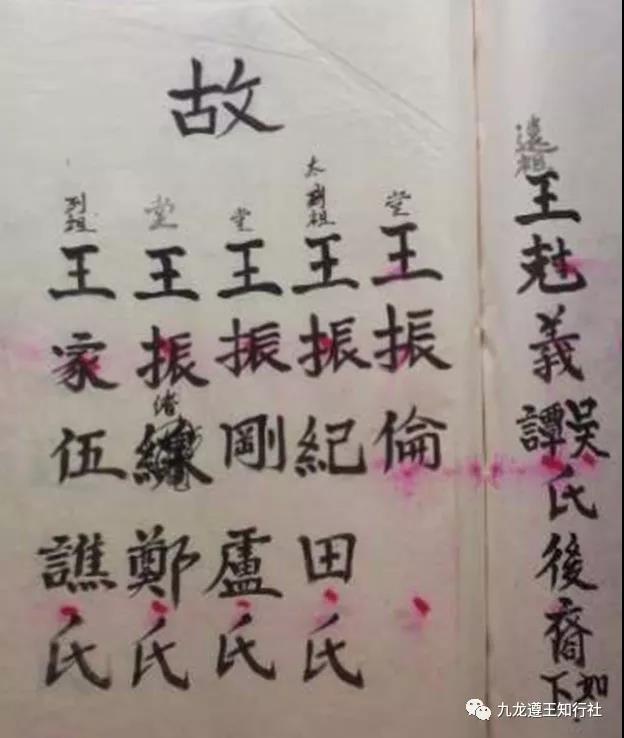 遠祖王尅義吳譚氏後裔如下
故
堂王振倫
太高祖王振紀田氏
堂王振剛盧氏
堂王振緒鄭氏
列祖王家伍譙氏
九龙遵王知行社